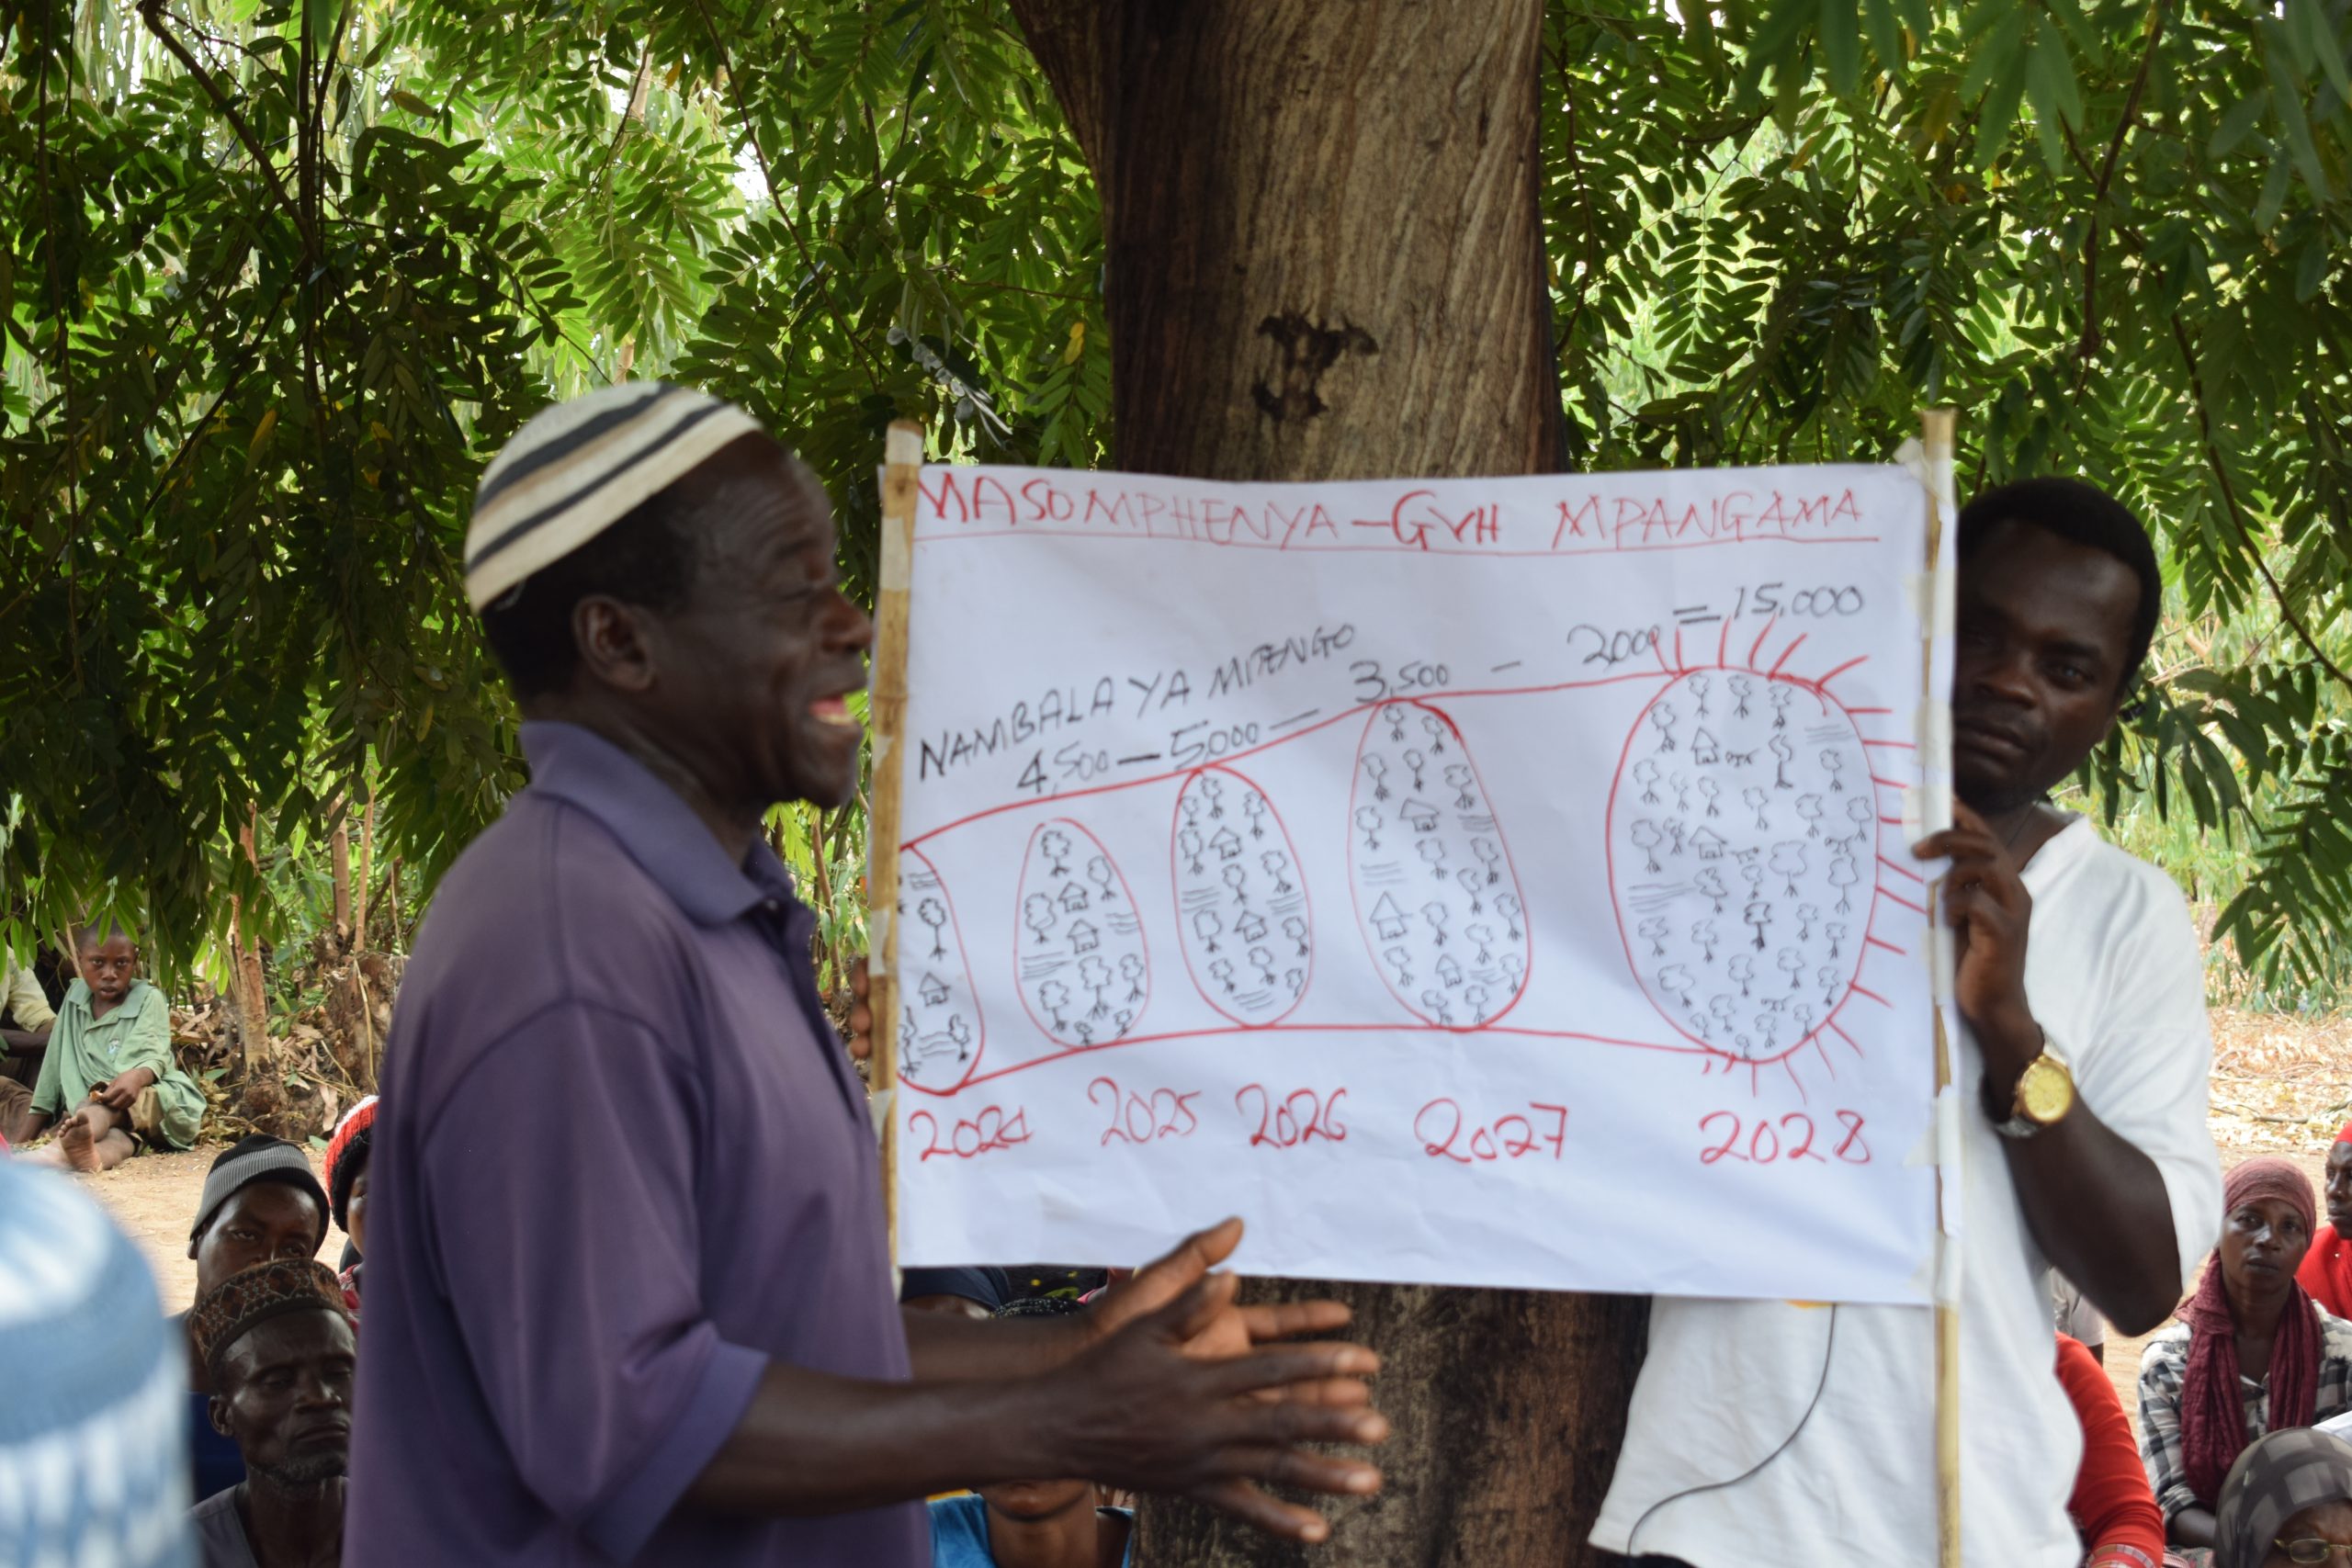 MASOMPHENYA - GVH MPANGAMA
NAMBALA YA MITENGO
4,500 - 5000 - 3,500 - 2000 = 15,000
2024 2025 2026 2027 2028